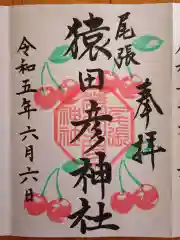 奉拝
尾張
猿田彦神社
令和五年六月六日